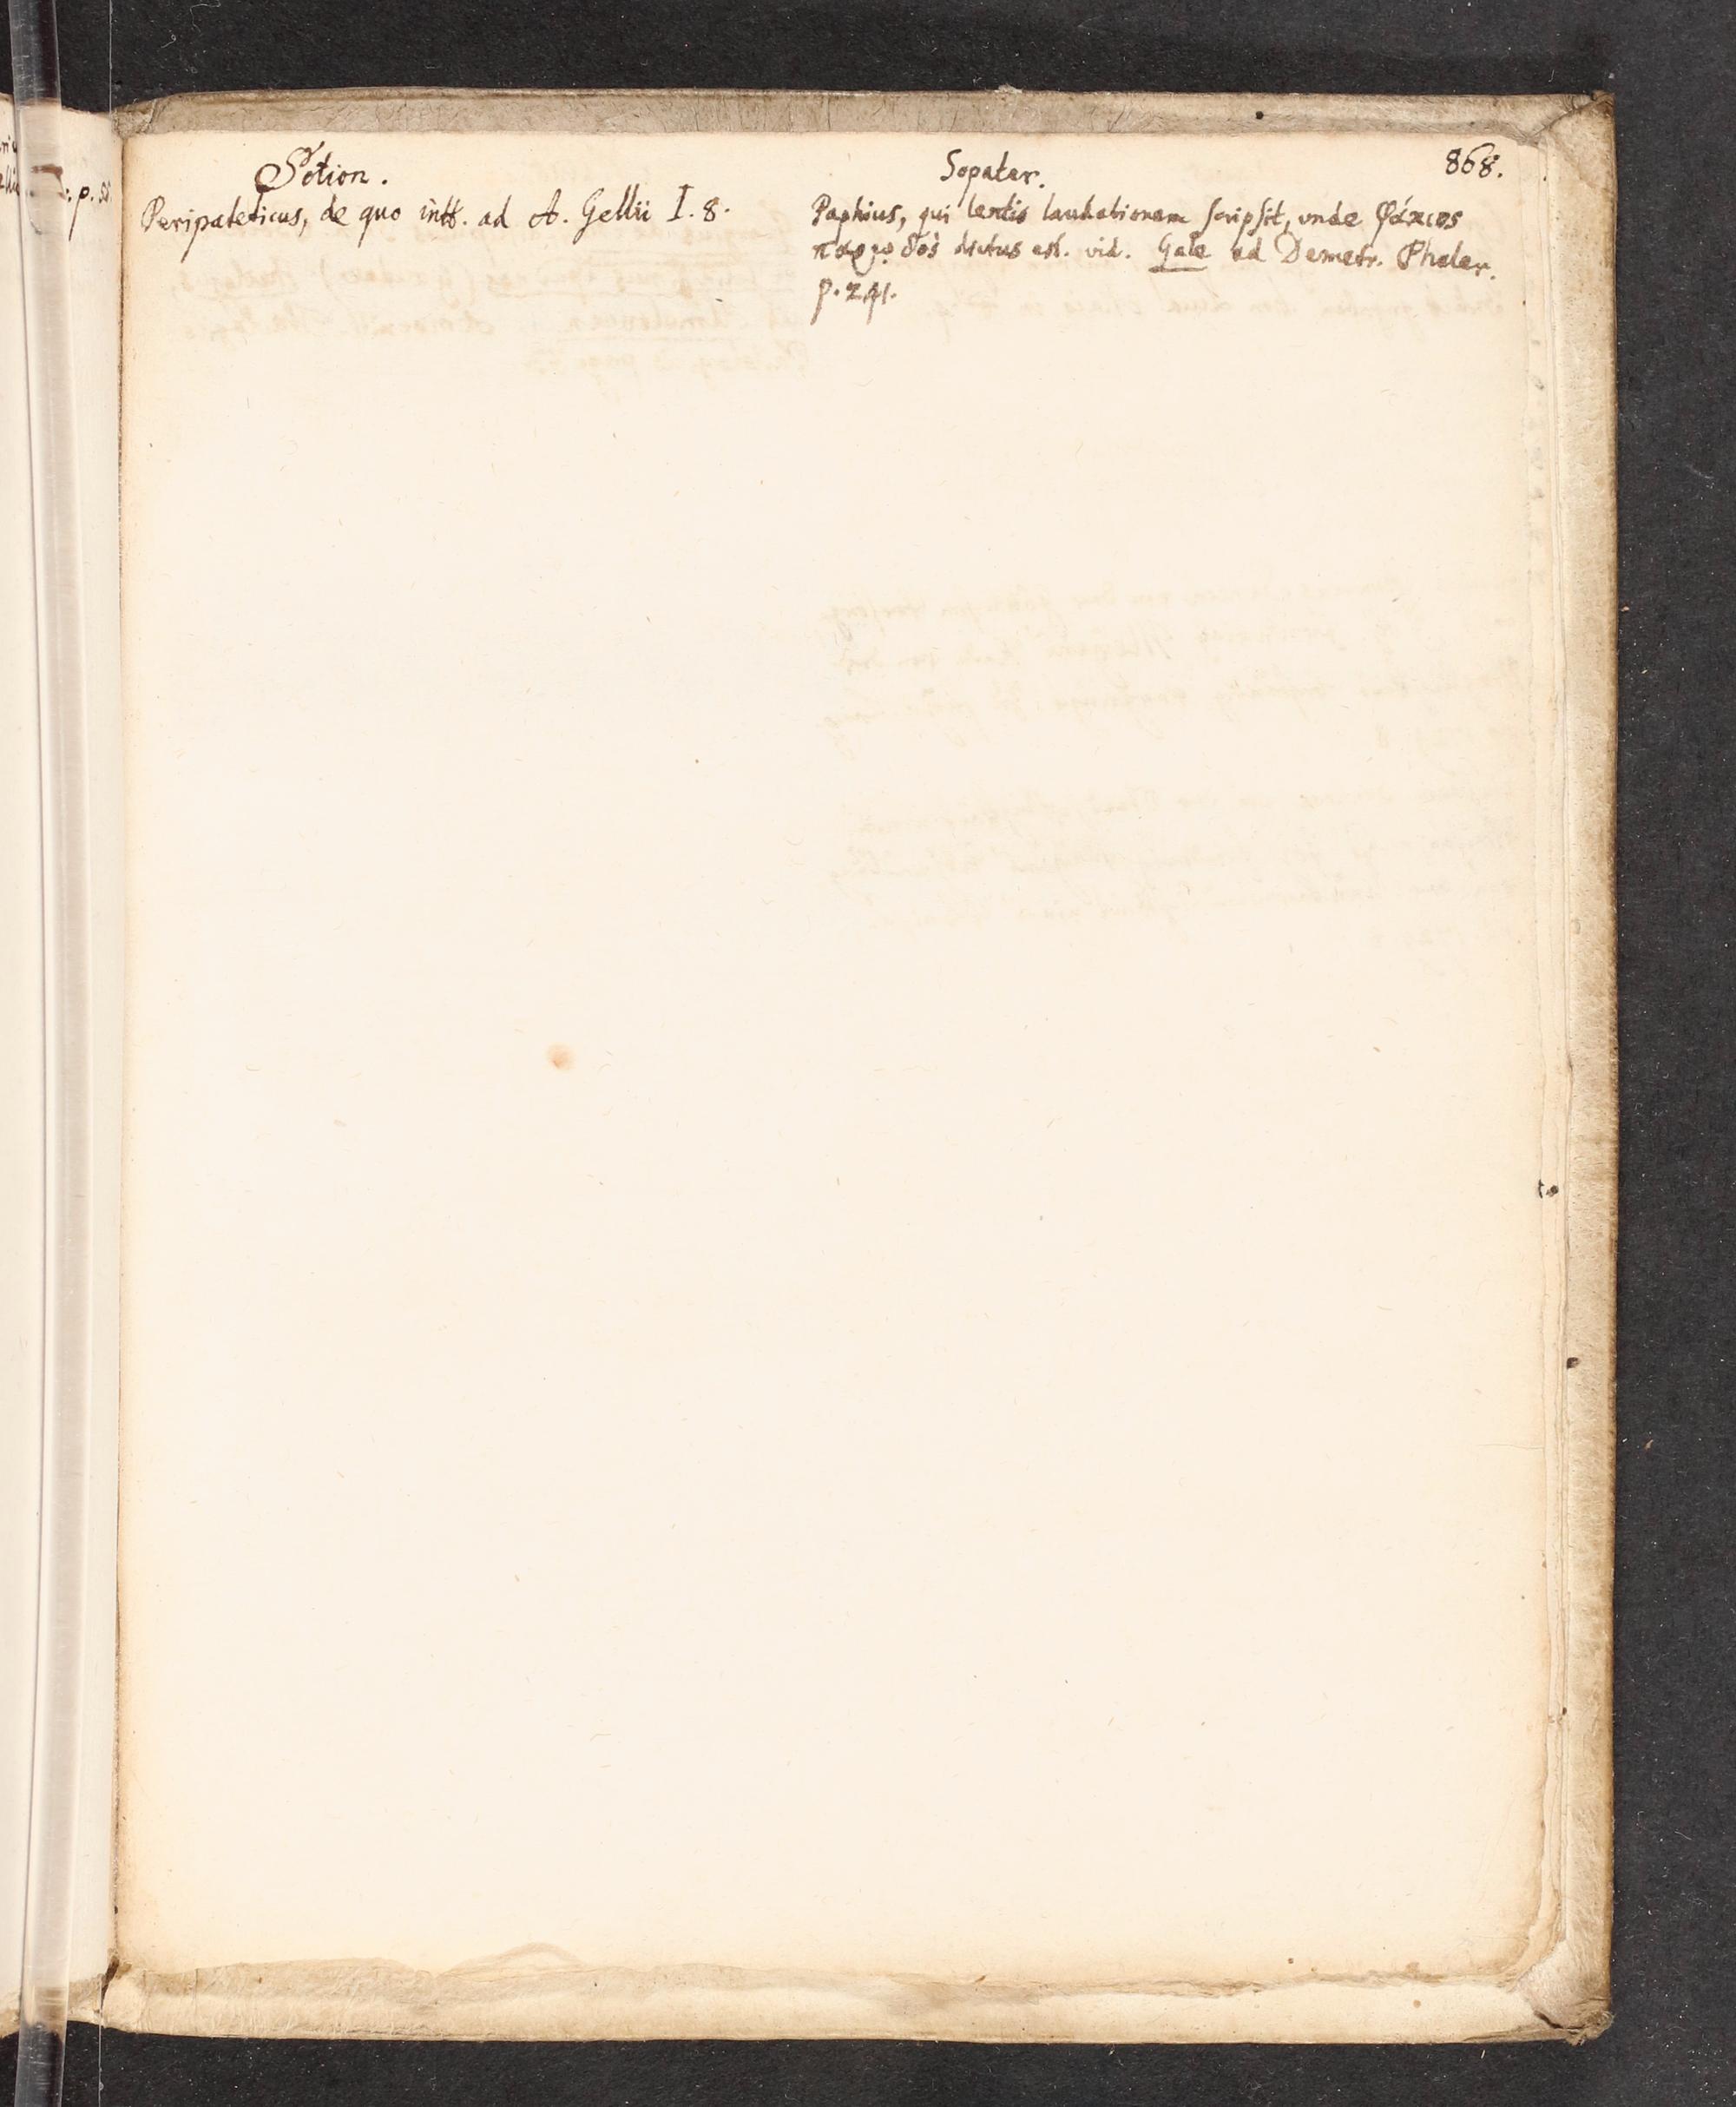 868.
Sotion.
Peripateticus, de quo intt. ad A. Gellii I. 8.
Sopater.
Paphius, qui lentis laudationem scripsit, unde φάκιος
παρῳδὸς dictus est. vid. Gale ad Demetr. Phaler.
p. 241.